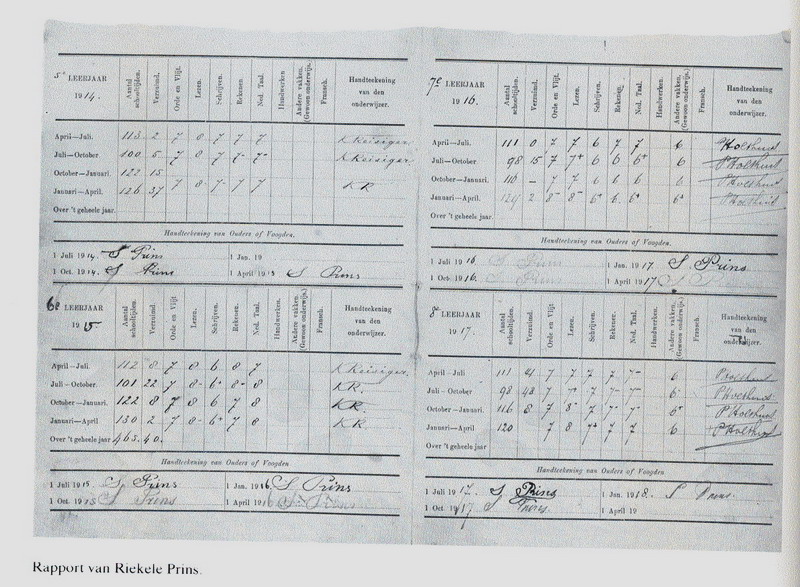 5e LEERJAAR
1914.
Aantal schooltijden.
Verzuimd.
Orde en Vlijt.
Lezen.
Schrijven.
Rekenen
Ned. Taal.
Handwerken
Andere vakken. (Gewoon onderwijs.)
Fransch.
Handteekening van den onderwijzer.
April—Juli. 113 2 7 8 7 7 7 K Keisigar
Juli—October 100 5 7 8 7 7- 7- K Keisigar
October—Januari. 122 15
Januari—April. 126 37 7 8- 7- 7 7 KR
Over 't geheele jaar.
Handteekening van Ouders of Voogden.
1 Juli 1914. S Prins 1 Jan. 19
1 Oct. 1914. S Prins 1 April 1915 S Prins
6e LEERJAAR
1915
Aantal schooltijden.
Verzuimd.
Orde en Vlijt
Lezen.
Schrijven.
Rekenen.
Ned. Taal.
Handwerken.
Andere vakken. (Gewoon onderwijs.)
Fransch.
Handteekening van den onderwijzer.
April—Juli. 112 8 7 8 6 8 7 K Keisigar
Juli—October. 101 22 7 8- 6 8- 8 KR.
October—Januari. 122 8 7 8 6 7 8 KR.
Januari—April 130 2 7 8- 6+ 7 8 KR
Over 't geheele jaar 465. 40.
Handteekening van Ouders of Voogden
1 Juli 1915. S Prins 1 Jan. 1916 S Prins
1 Oct. 1915 S Prins 1 April 1916 S Prins
7e LEERJAAR
1916
Aantal schooltijden.
Verzuimd.
Orde en Vlijt.
Lezen.
Schrijven.
Rekenen.
Ned. Taal.
Handwerken.
Andere vakken. (Gewoon onderwijs.)
Fransch.
Handteekening van den onderwijzer.
April—Juli. 111 0 7 7 6 7 7 6 P Holthuis
Juli—October 98 15 7 7+ 6 6 6+ 6 P Holthuis
October—Januari. 110 — 7 7 6 6 6 6 P Holthuis
Januari—April. 129 2 8- 8- 6+ 6 6+ 6+ P Holthuis
Over 't geheele jaar.
Handteekening van Ouders of Voogden
1 Juli 1916 S Prins 1 Jan. 1917 S Prins
1 Oct. 1916. S Prins 1 April 1917
8e LEERJAAR
1917.
Aantal schooltijden.
Verzuimd.
Orde en Vlijt
Lezen.
Schrijven.
Rekenen.
Ned. Taal.
Handwerken.
Andere vakken. (Gewoon onderwijs.)
Fransch.
Handteekening van den onderwijzer.
April—Juli 111 21 7 7 7 7 7- 6 P Holthuis
Juli—October 98 48 7 7 7 7- 7- 6- P Holthuis
October—Januari. 116 8 7 8- 7 7- 7- 6+ P Holthuis
Januari—April 120 7 8 7+ 7 7 6 P Holthuis
Over 't geheele jaar.
Handteekening van Ouders of Voogden
1 Juli 1917. S Prins 1 Jan. 1918. S Prins.
1 Oct. 1917 S Prins 1 April 19
Rapport van Riekele Prins.